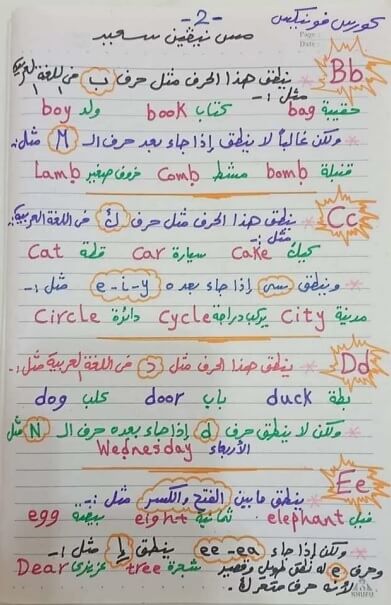 -2-
كورس فونيكس
مس نيڤين سعيد
Page:
Date:
Bb
ينطق هذا الحرف مثل حرف ب في اللغة العربية
مثل :-
bag حقيبة book كتاب boy ولد
ولكن غالباً لا ينطق إذا جاء بعد حرف الـ M مثل:
bomb قنبلة Comb مشط Lamb خروف صغير
Cc
ينطق هذا الحرف مثل حرف ك في اللغة العربية
مثل :-
Cake كيك Car سيارة Cat قطة
وينطق سي إذا جاء بعده e-i-y مثل :-
City مدينة Cycle يركب دراجة Circle دائرة
Dd
ينطق هذا الحرف مثل د في اللغة العربية مثل :-
duck بطة door باب dog كلب
ولكن لا ينطق حرف d إذا جاء بعده حرف الـ N مثل
الأربعاء Wednesday
Ee
ينطق ما بين الفتح والكسر مثل :-
elephant فيل eight ثمانية egg بيضة
ولكن إذا جاء ee-ea ينطق إي مثل :-
tree شجرة Dear عزيزي
وحرف e له نطق طويل وقصير
لأنه حرف متحرك.